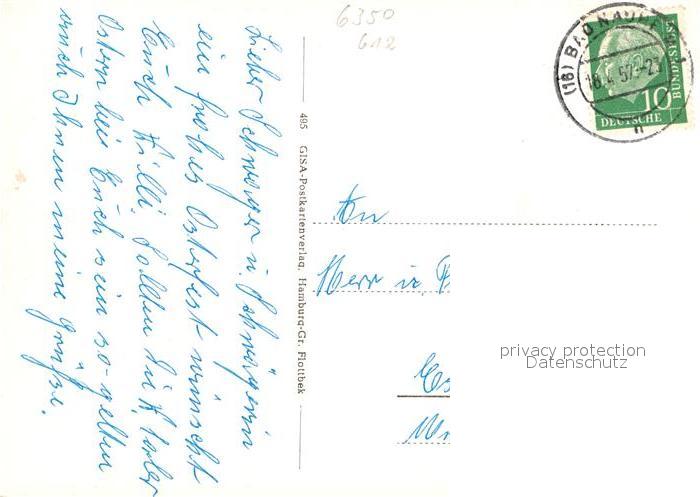 Lieber Schwager u. Schwägerin
ein frohes Osterfest wünscht
Euch Willi. Sollten die
Ostern bei Euch sein so gelten
auch Ihnen meine Grüße.
6350
612
495 GISA-Postkartenverlag, Hamburg-Gr. Flottbek
(16) BAD NAUHEIM
18.4.57
10
DEUTSCHE
BUNDESPOST
An
Herr u.
privacy protection
Datenschutz